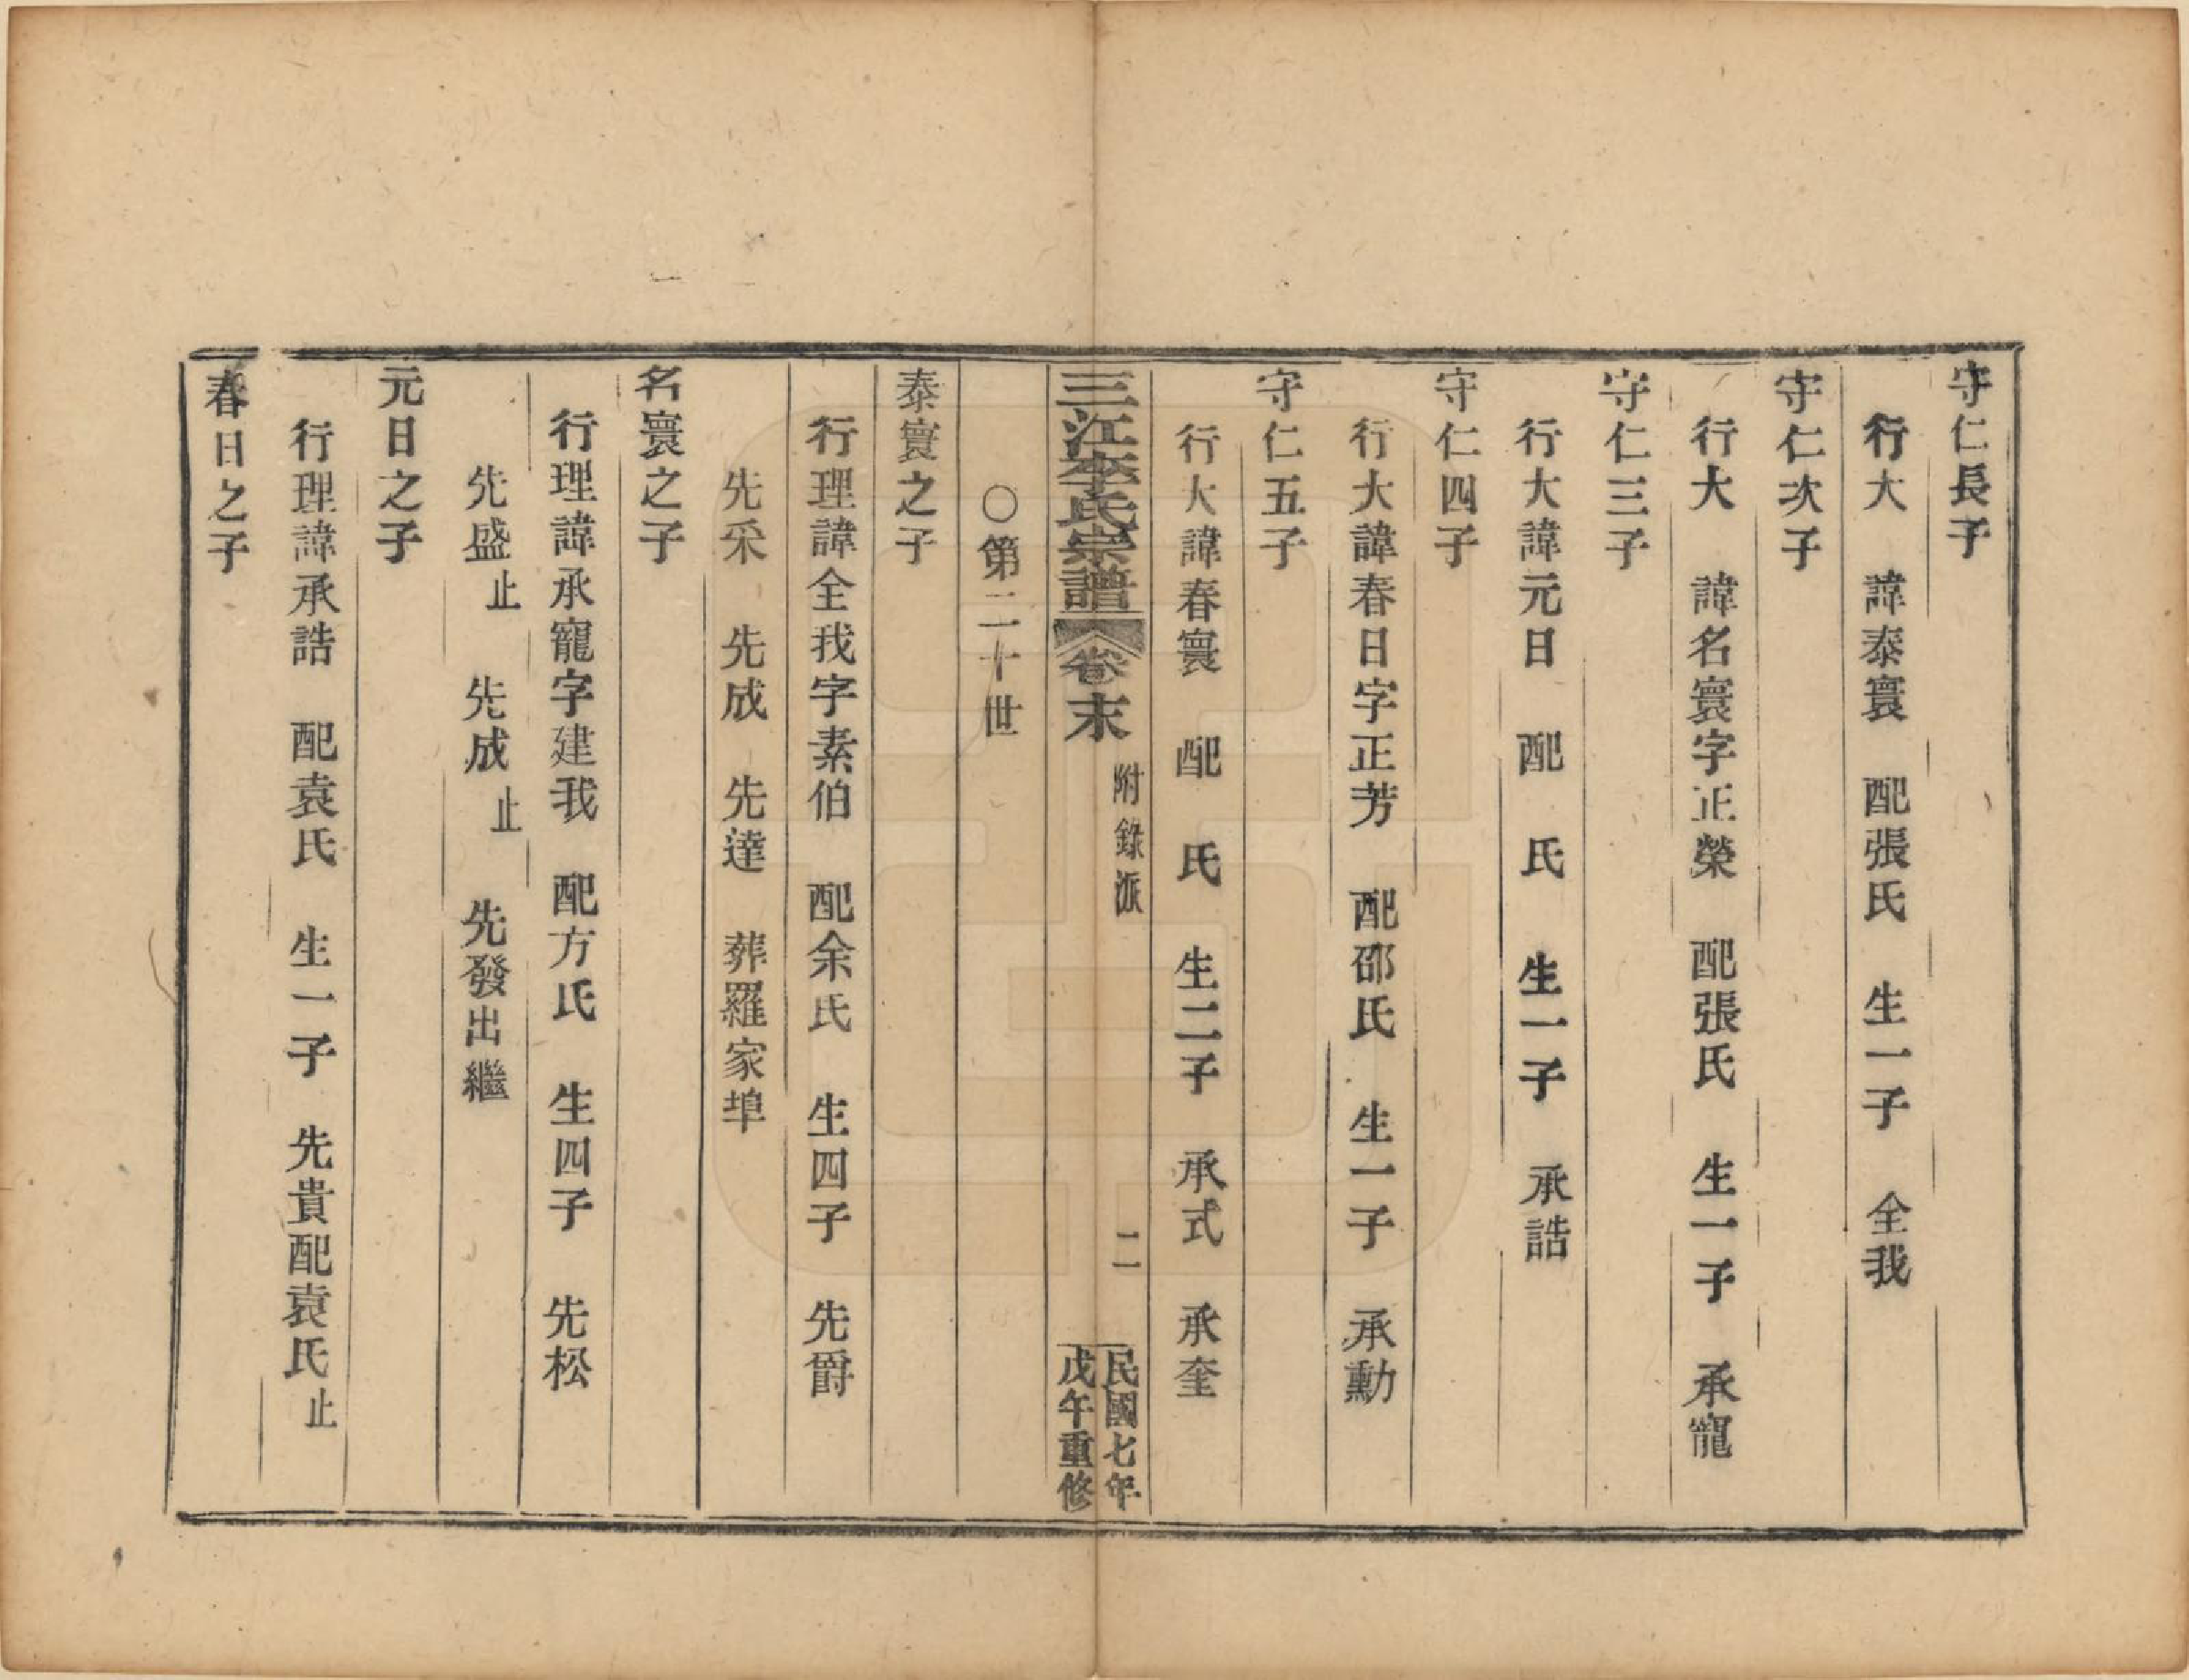 守仁長子
行大　諱泰寰　配張氏　生一子　全我
守仁次子
行大　諱名寰字正榮　配張氏　生一子　承寵
守仁三子
行大諱元日　配　氏　生一子　承誥
守仁四子
行大諱春日字正芳　配邵氏　生一子　承勳
守仁五子
行大諱春寰　配　氏　生二子　承式　承奎
三江李氏宗譜　卷末　附錄派　二　民國七年
戊午重修
○第二十世
泰寰之子
行理諱全我字素伯　配余氏　生四子　先爵
先采　先成　先達　葬羅家埠
名寰之子
行理諱承寵字建我　配方氏　生四子　先松
先盛止　先成止　先發出繼
元日之子
行理諱承誥　配袁氏　生一子　先貴配袁氏止
春日之子